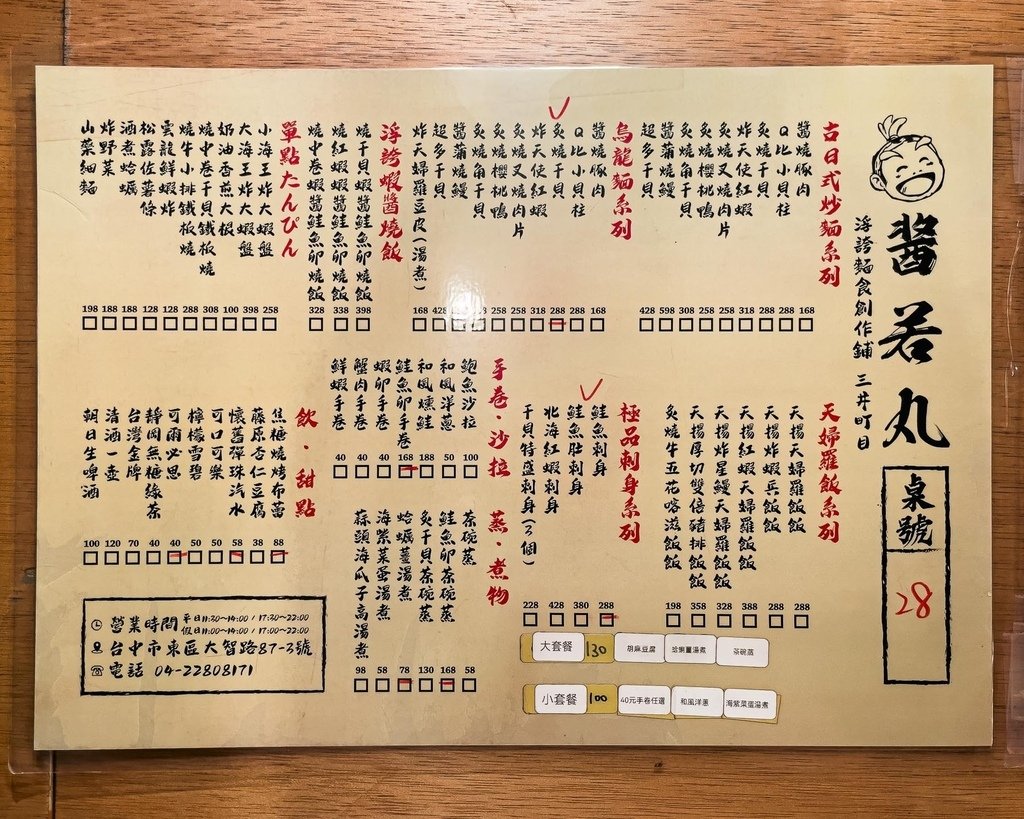 醬若丸
浮誇麵食創作鋪 三井町目
桌號
28
古日式炒麵系列
醬燒豚肉 168
Q比小貝柱 288
炙燒干貝 288
炸天使紅蝦 318
炙燒叉燒肉片 258
炙燒櫻桃鴨 258
炙燒角干貝 308
醬蒲燒鰻 598
超多干貝 428
烏龍麵系列
醬燒豚肉 168
Q比小貝柱 288
炙燒干貝 288
炸天使紅蝦 318
炙燒叉燒肉片 258
炙燒櫻桃鴨 258
炙燒角干貝
醬蒲燒鰻
超多干貝 428
炸天婦羅豆皮(湯煮) 168
浮誇蝦醬燒飯
燒干貝蝦醬鮭魚卵燒飯 398
燒紅蝦蝦醬鮭魚卵燒飯 338
燒中卷蝦醬鮭魚卵燒飯 328
單點たんぴん
小海王炸大蝦盤 258
大海王炸大蝦盤 398
奶油香煎大蝦 100
燒中卷干貝鐵板燒 308
燒牛小排鐵板燒 288
雲龍鮮蝦炸 128
松露佐薯條 128
酒煮蛤蠣 188
炸野菜 188
山藥細麵 198
天婦羅飯系列
天揚天婦羅飯飯 288
天揚炸蝦兵飯飯 288
天揚紅蝦天婦羅飯飯 388
天揚炸星鰻天婦羅飯飯 428
天揚厚切雙倍豬排飯飯 358
炙燒牛五花喀滋飯飯 198
極品刺身系列
鮭魚刺身 288
鮭魚肚刺身 380
北海紅蝦刺身 458
干貝特盛刺身(3個) 228
手卷·沙拉
鮑魚沙拉 100
和風洋蔥 50
和風燻鮭 188
鮭魚卵手卷 168
蝦卵手卷 40
蟹肉手卷 40
鮮蝦手卷 40
蒸·煮物
茶碗蒸 58
鮭魚卵茶碗蒸 168
炙干貝茶碗蒸 130
蛤蠣薑湯煮 78
海紫菜蛋湯煮 58
蒜頭海瓜子高湯煮 98
飲·甜點
焦糖燒烤布蕾 88
藤原杏仁豆腐 38
懷舊彈珠汽水 58
可口可樂 50
檸檬雪碧 50
可爾必思 40
靜岡無糖綠茶 40
台灣金牌 70
清酒一壺 120
朝日生啤酒 100
大套餐 130 胡麻豆腐 蛤蜊薑湯煮 茶碗蒸
小套餐 100 40元手卷任選 和風洋蔥 海紫菜蛋湯煮
營業時間 平日11:30~14:00 / 17:30~22:00
假日11:00~14:00 / 17:00~22:00
台中市東區大智路87-3號
電話 04-22808171